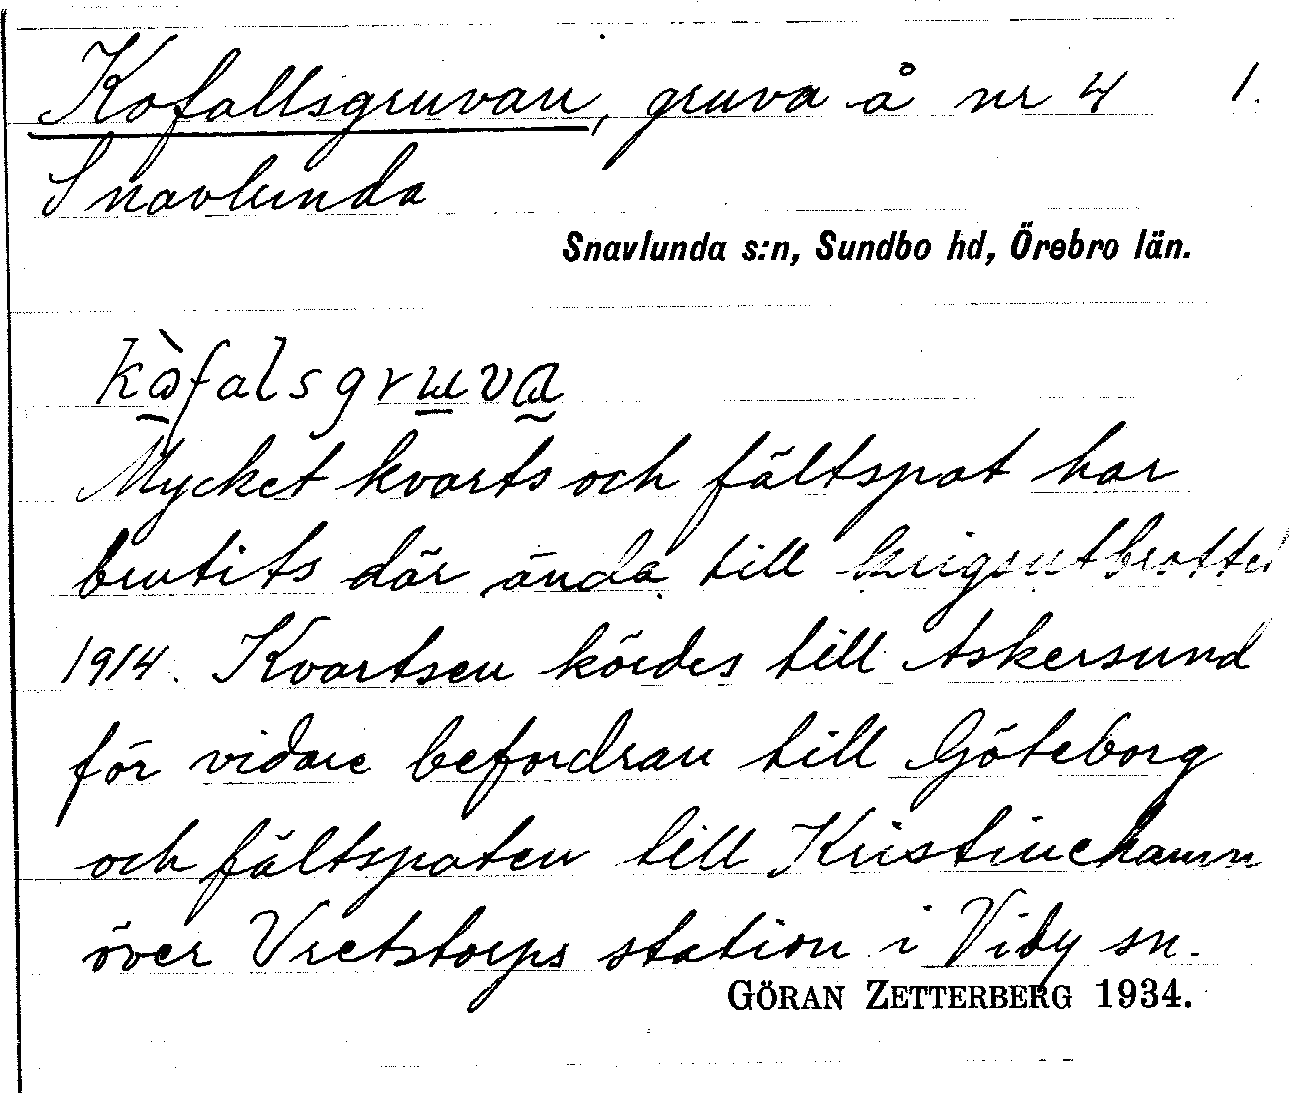 Kofallsgruvan, gruva å nr 4 1.
Snavlunda
Snavlunda s:n, Sundbo hd, Örebro län.
Mycket kvarts och fältspat har
brutits där ända till krigsutbrottet
1914. Kvartsen kördes till Askersund
för vidare befordran till Göteborg
och fältspaten till Kristinehamn
över Vretstorps station i Viby sn.
GÖRAN ZETTERBERG 1934.